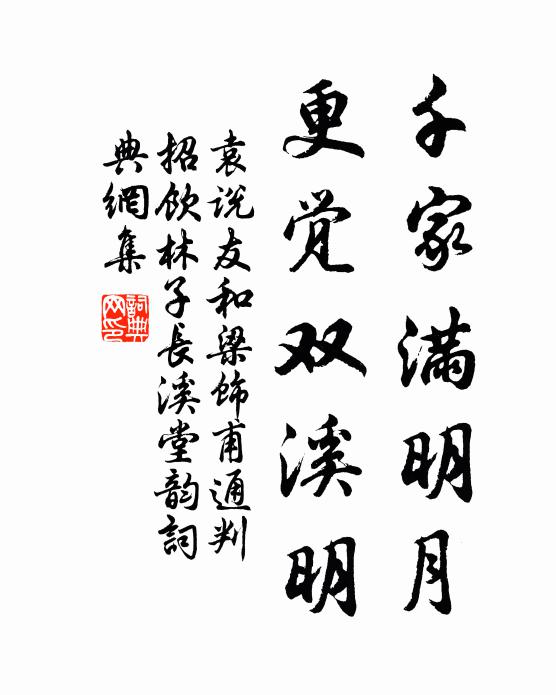 千家满明月
更觉双溪明
袁说友和梁饰甫通判
招饮林子長溪堂韵詞
典網集
詞典
网印